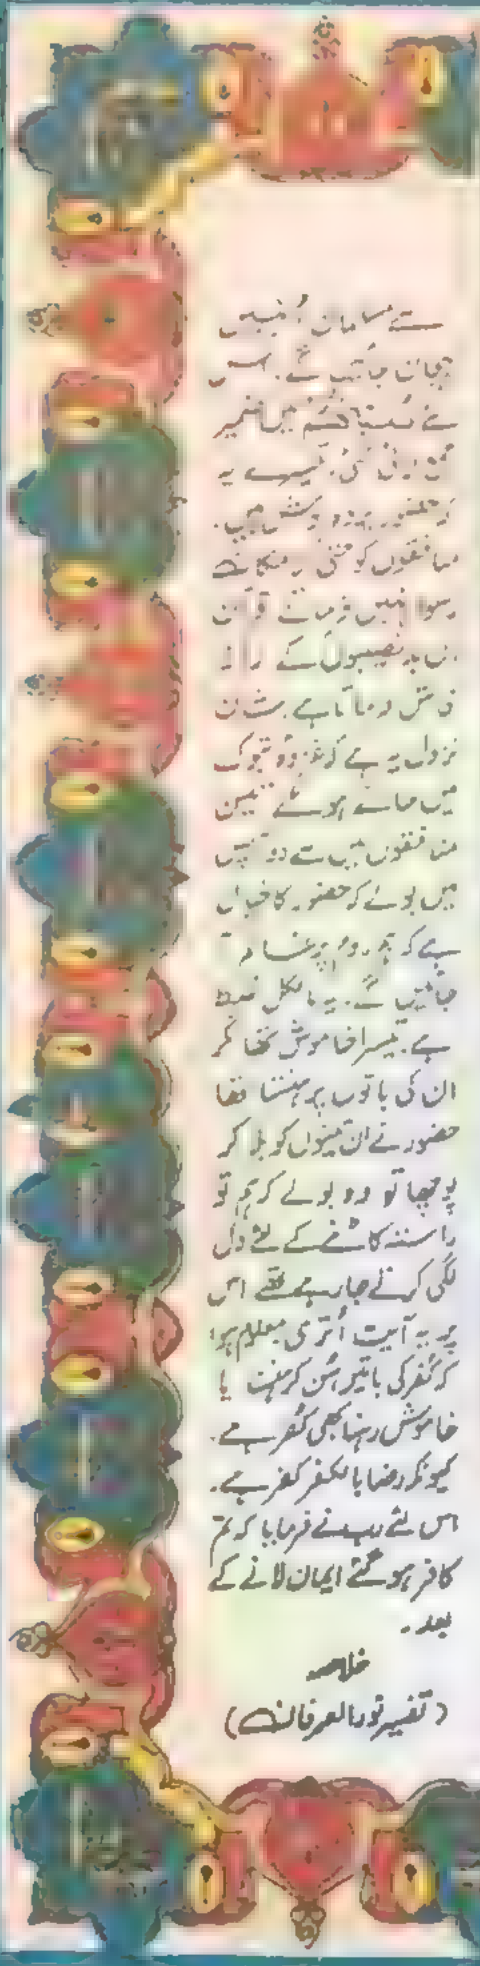 سے مسلمان انہیں
پہچان جائیں گے. اس
سے
یہ
منافقوں کو
رسوا نہیں فرماتے قرآن
ان بدنصیبوں کے راز
فاش فرماتا ہے. شان
نزول یہ ہے کہ غزوہ تبوک
میں جاتے ہوئے تین
منافقوں میں سے دو آپس
میں بولے کہ حضور کا خیال
ہے کہ ہم روم پر غالب آ
جائیں گے. یہ بالکل غلط
ہے. تیسرا خاموش تھا مگر
ان کی باتوں پر ہنستا تھا
حضور نے ان تینوں کو بلا کر
پوچھا تو وہ بولے کہ ہم تو
راستہ کاٹنے کے لئے دل
لگی کرتے جا رہے تھے اس
پر یہ آیت اتری معلوم ہوا
کہ کفر کی باتیں سن کر ہنسنا یا
خاموش رہنا بھی کفر ہے.
کیونکہ رضا بالکفر کفر ہے.
اس لئے رب نے فرمایا کہ تم
کافر ہو گئے ایمان لانے کے
بعد۔
خلاصہ
(تفسیر نور العرفان)